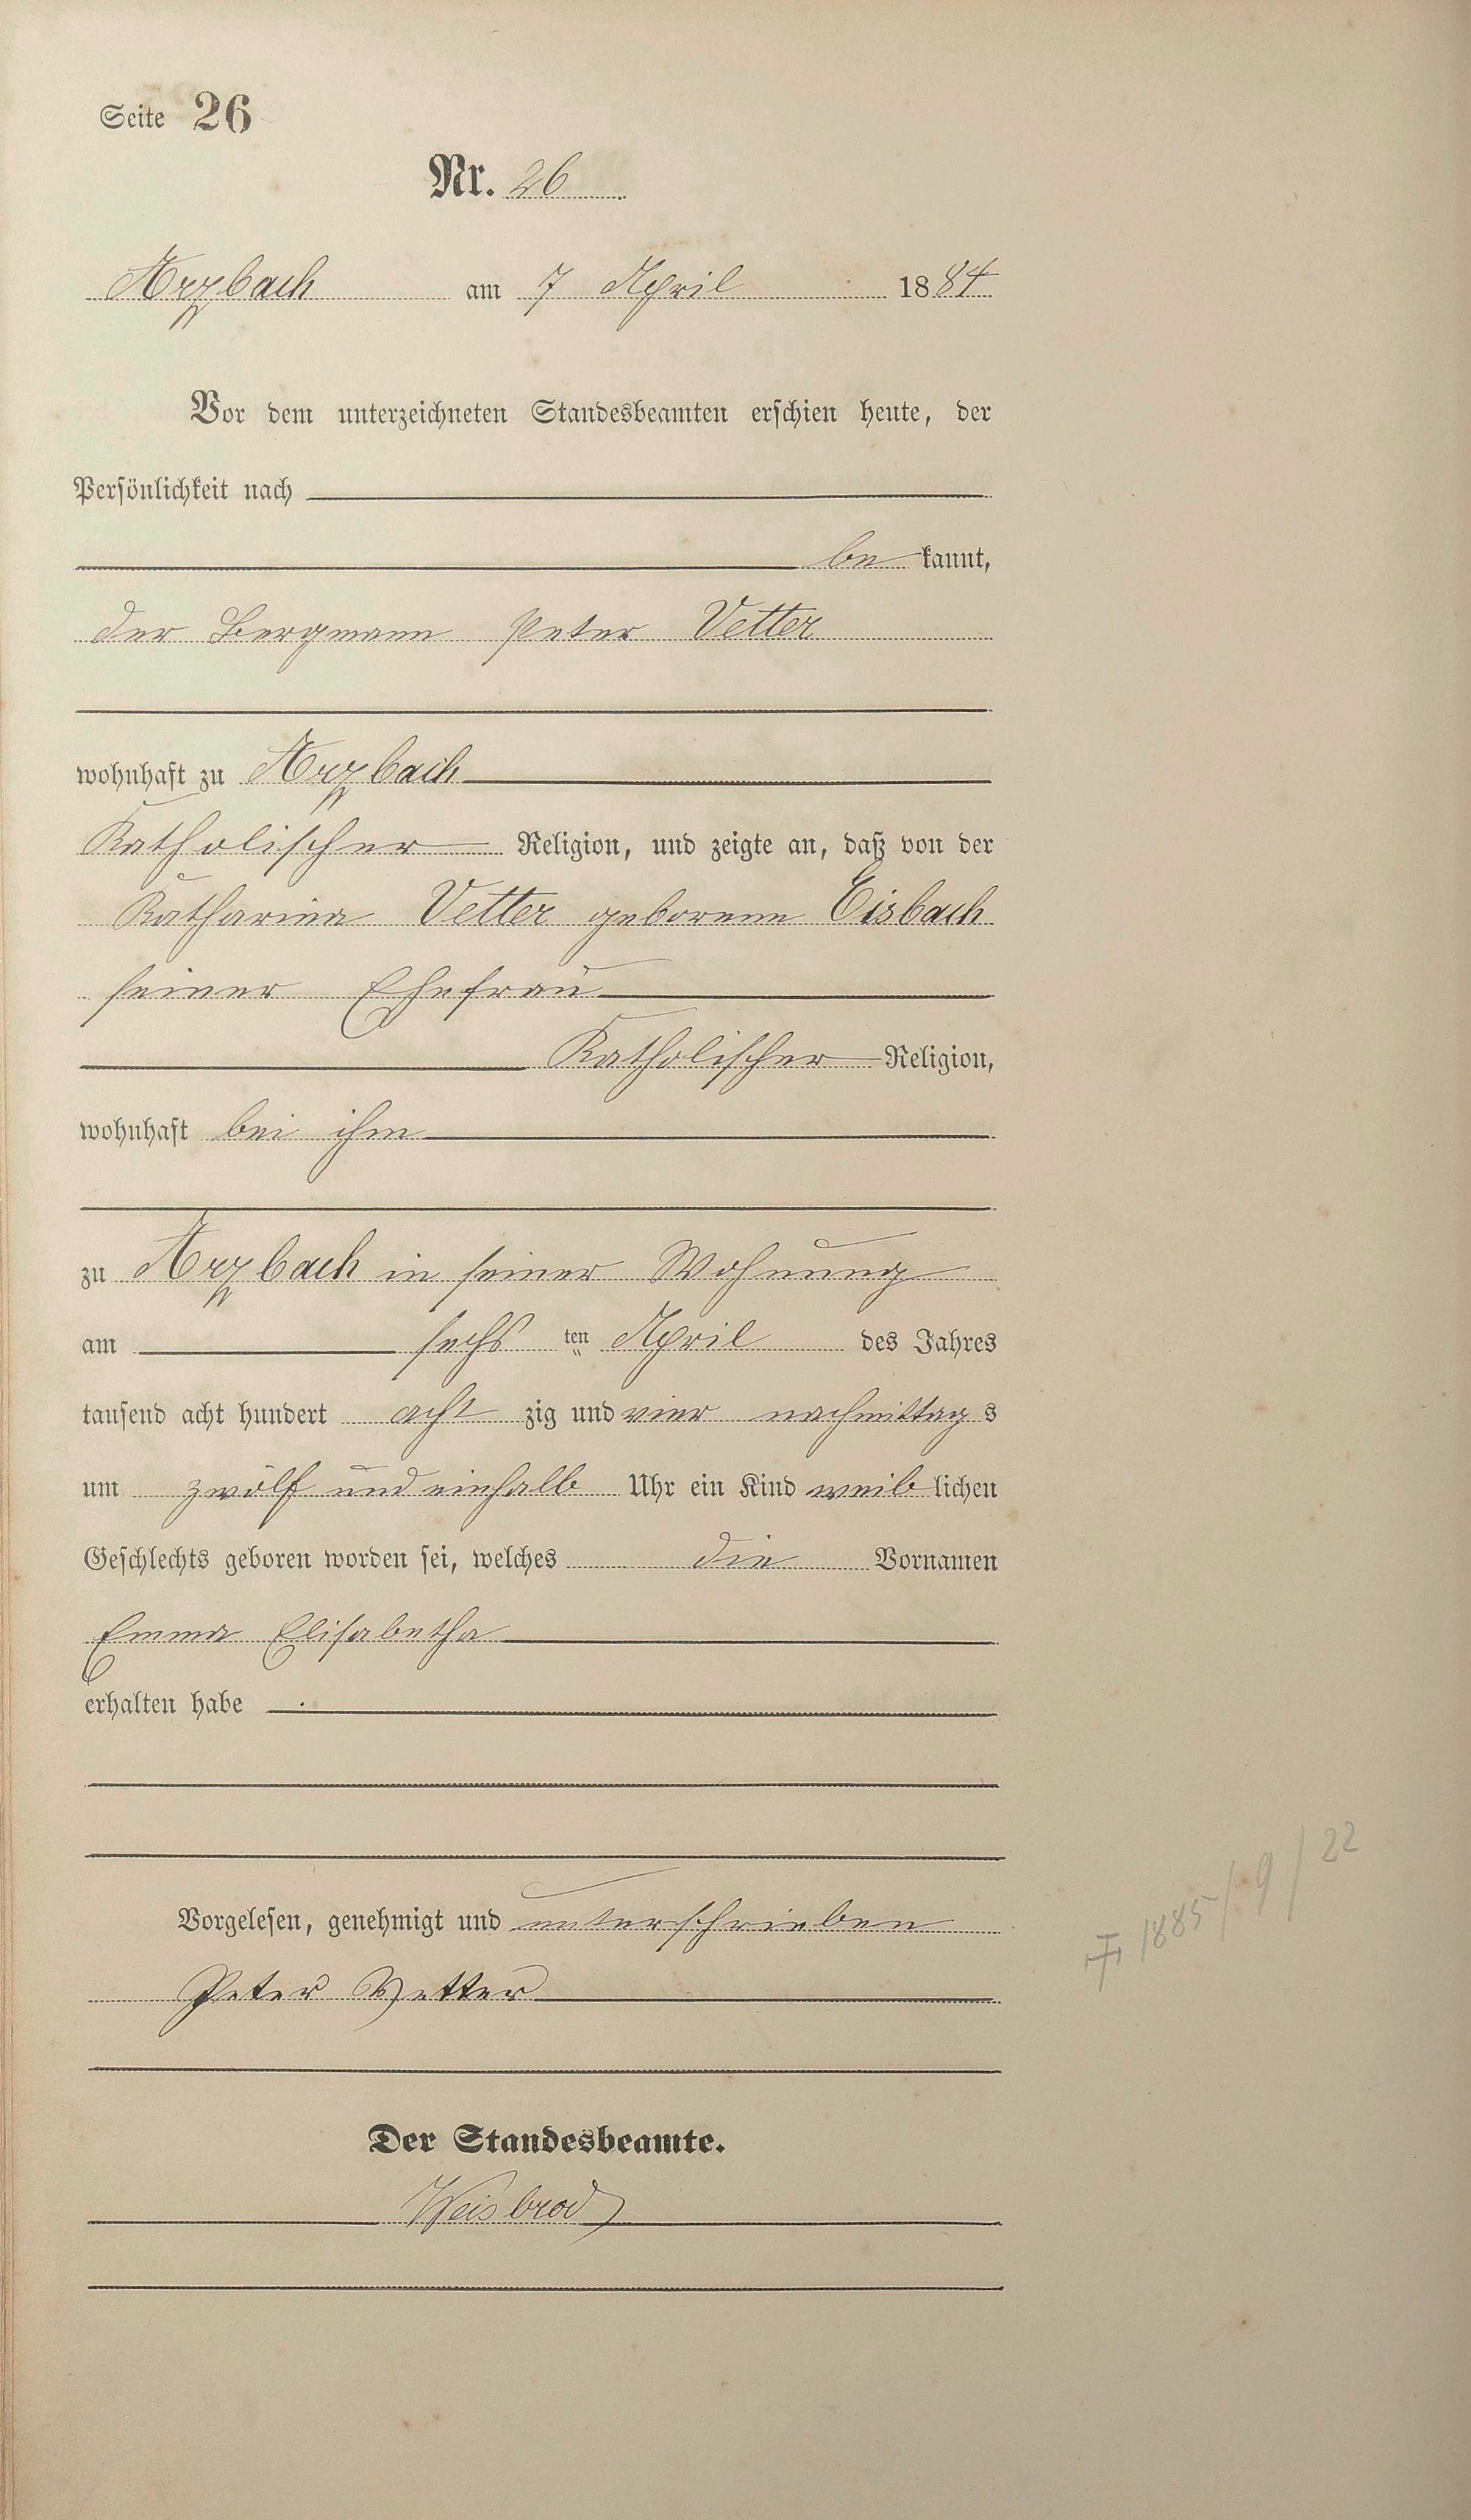 Seite 26
Nr. 26
Arzbach am 7 April 1884
Vor dem unterzeichneten Standesbeamten erschien heute, der
Persönlichkeit nach
be kannt,
der Bergmann Peter Vetter
wohnhaft zu Arzbach
Katholischer Religion, und zeigte an, daß von der
Katharina Vetter geborene Eisbach
seiner Ehefrau
Katholischer Religion,
wohnhaft bei ihm
zu Arzbach in seiner Wohnung
am sechs ten April des Jahres
tausend acht hundert acht zig und vier nachmittag s
um zwölf und einhalb Uhr ein Kind weib lichen
Geschlechts geboren worden sei, welches die Vornamen
Emma Elisabetha
erhalten habe .
Vorgelesen, genehmigt und unterschrieben
Peter Vetter
Der Standesbeamte.
Weisbrod
† 1885/9/22